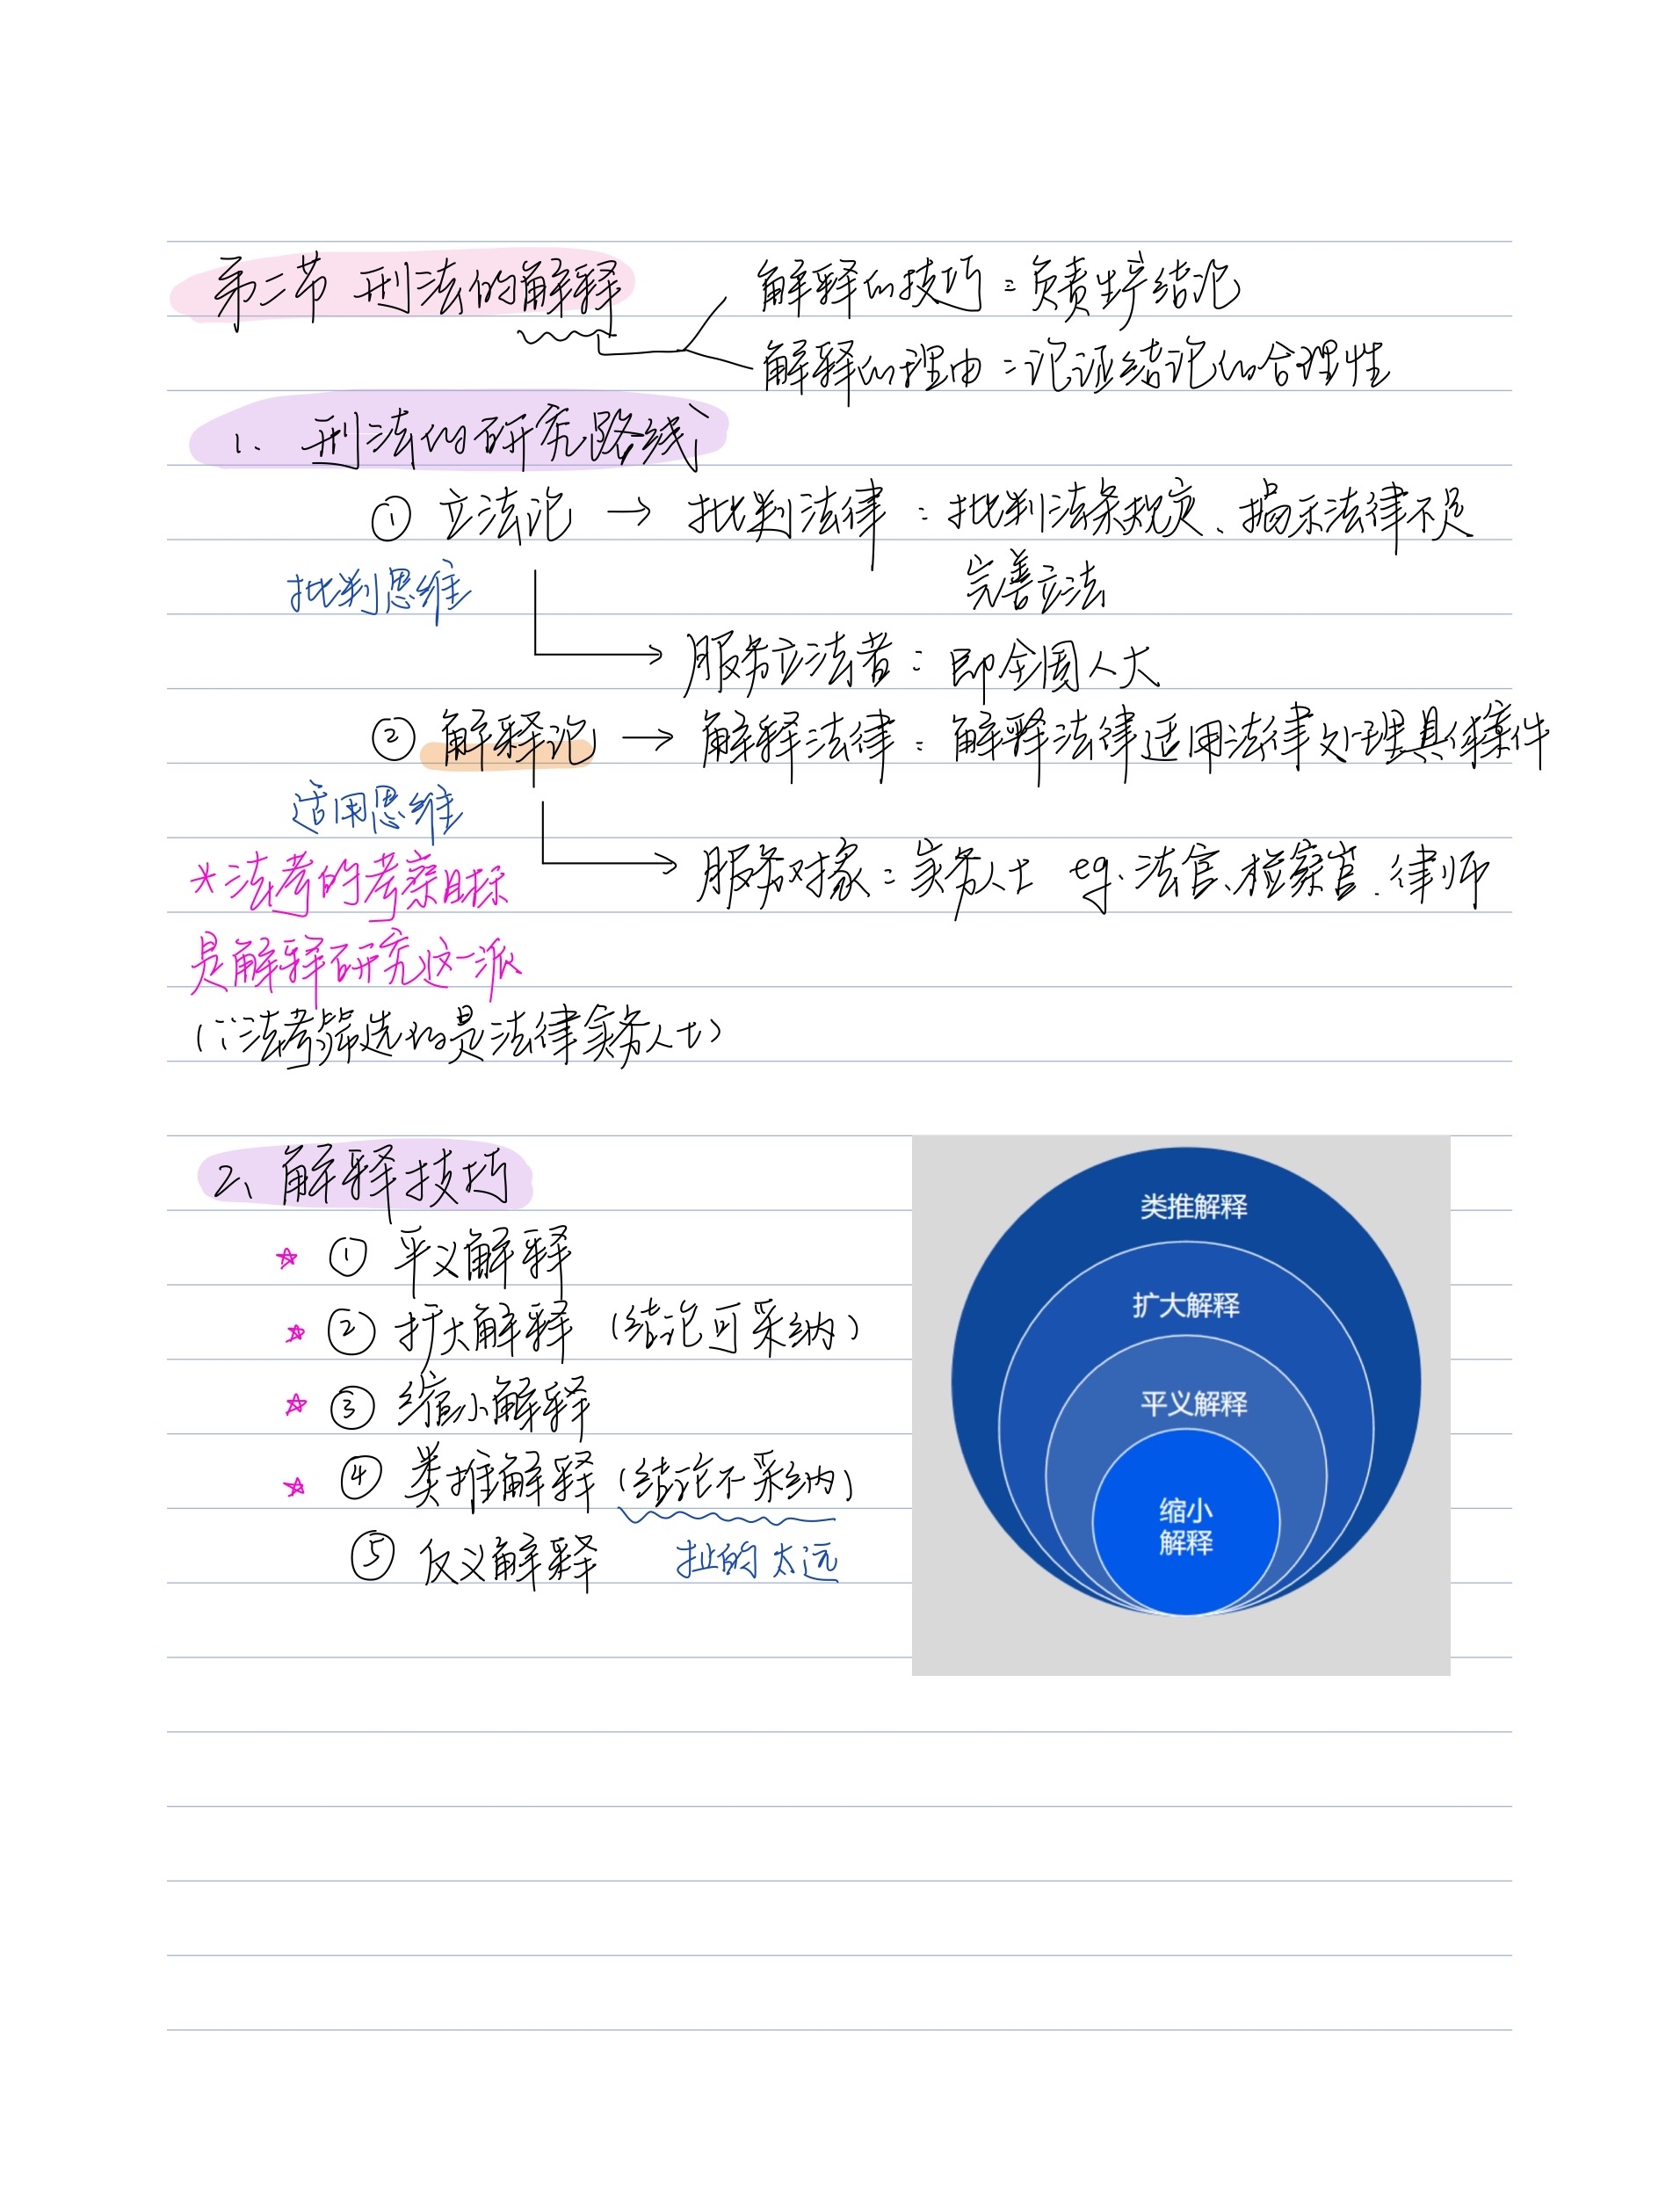 第二节 刑法的解释
解释的技巧：负责生产结论
解释的理由：论证结论的合理性
1、刑法的研究路线
① 立法论 → 批判法律：批判法条规定、揭示法律不足
完善立法
批判思维
服务立法者：即全国人大
② 解释论 → 解释法律：解释法律适用法律处理具体案件
适用思维
服务对象：实务人士 eg、法官、检察官、律师
*法考的考察目标
是解释研究这一派
（∵法考筛选的是法律实务人士）
2、解释技巧
☆ ① 平义解释
☆ ② 扩大解释（结论可采纳）
☆ ③ 缩小解释
☆ ④ 类推解释（结论不采纳）
⑤ 反义解释 扯的太远
类推解释
扩大解释
平义解释
缩小
解释